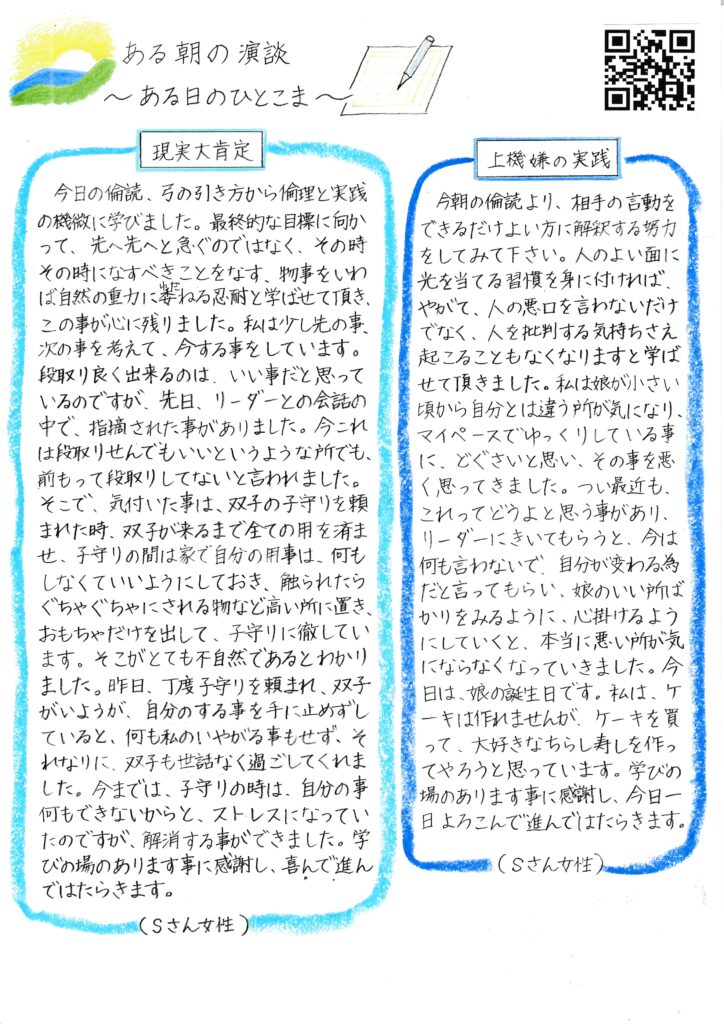 ある朝の演談
～ある日のひとこま～
現実大肯定
今日の倫読、弓の引き方から倫理と実践
の機微に学びました。最終的な目標に向か
って、先へ先へと急ぐのではなく、その時
その時になすべきことをなす、物事をいわ
ば自然の重力に委ねる忍耐と学ばせて頂き、
この事が心に残りました。私は少し先の事、
次の事を考えて、今する事をしています。
段取り良く出来るのは、いい事だと思って
いるのですが、先日、リーダーとの会話の
中で、指摘された事がありました。今これ
は段取りせんでもいいというような所でも、
前もって段取りしてないと言われました。
そこで、気付いた事は、双子の子守りを頼
まれた時、双子が来るまで全ての用を済ま
せ、子守りの間は家で自分の用事は、何も
しなくていいようにしておき、触られたら
ぐちゃぐちゃにされる物など高い所に置き、
おもちゃだけを出して、子守りに徹してい
ます。そこがとても不自然であるとわかり
ました。昨日、丁度子守りを頼まれ、双子
がいようが、自分のする事を手に止めずし
ていると、何も私のいやがる事もせず、そ
れなりに、双子も世話なく過ごしてくれま
した。今までは、子守りの時は、自分の事
何もできないからと、ストレスになってい
たのですが、解消する事ができました。学
びの場のあります事に感謝し、喜んで進ん
ではたらきます。
（Sさん女性）
上機嫌の実践
今朝の倫読より、相手の言動を
できるだけよい方に解釈する努力
をしてみて下さい。人のよい面に
光を当てる習慣を身に付ければ、
やがて、人の悪口を言わないだけ
でなく、人を批判する気持ちさえ
起こることもなくなりますと学ば
せて頂きました。私は娘が小さい
頃から自分とは違う所が気になり、
マイペースでゆっくりしている事
に、どぐさいと思い、その事を悪
く思ってきました。つい最近も、
これってどうよと思う事があり、
リーダーにきいてもらうと、今は
何も言わないで、自分が変わる為
だと言ってもらい、娘のいい所ば
かりをみるように、心掛けるよう
にしていくと、本当に悪い所が気
にならなくなっていきました。今
日は、娘の誕生日です。私は、ケ
ーキは作れませんが、ケーキを買
って、大好きなちらし寿しを作っ
てやろうと思っています。学びの
場のあります事に感謝し、今日一
日よろこんで進んではたらきます。
（Sさん女性）